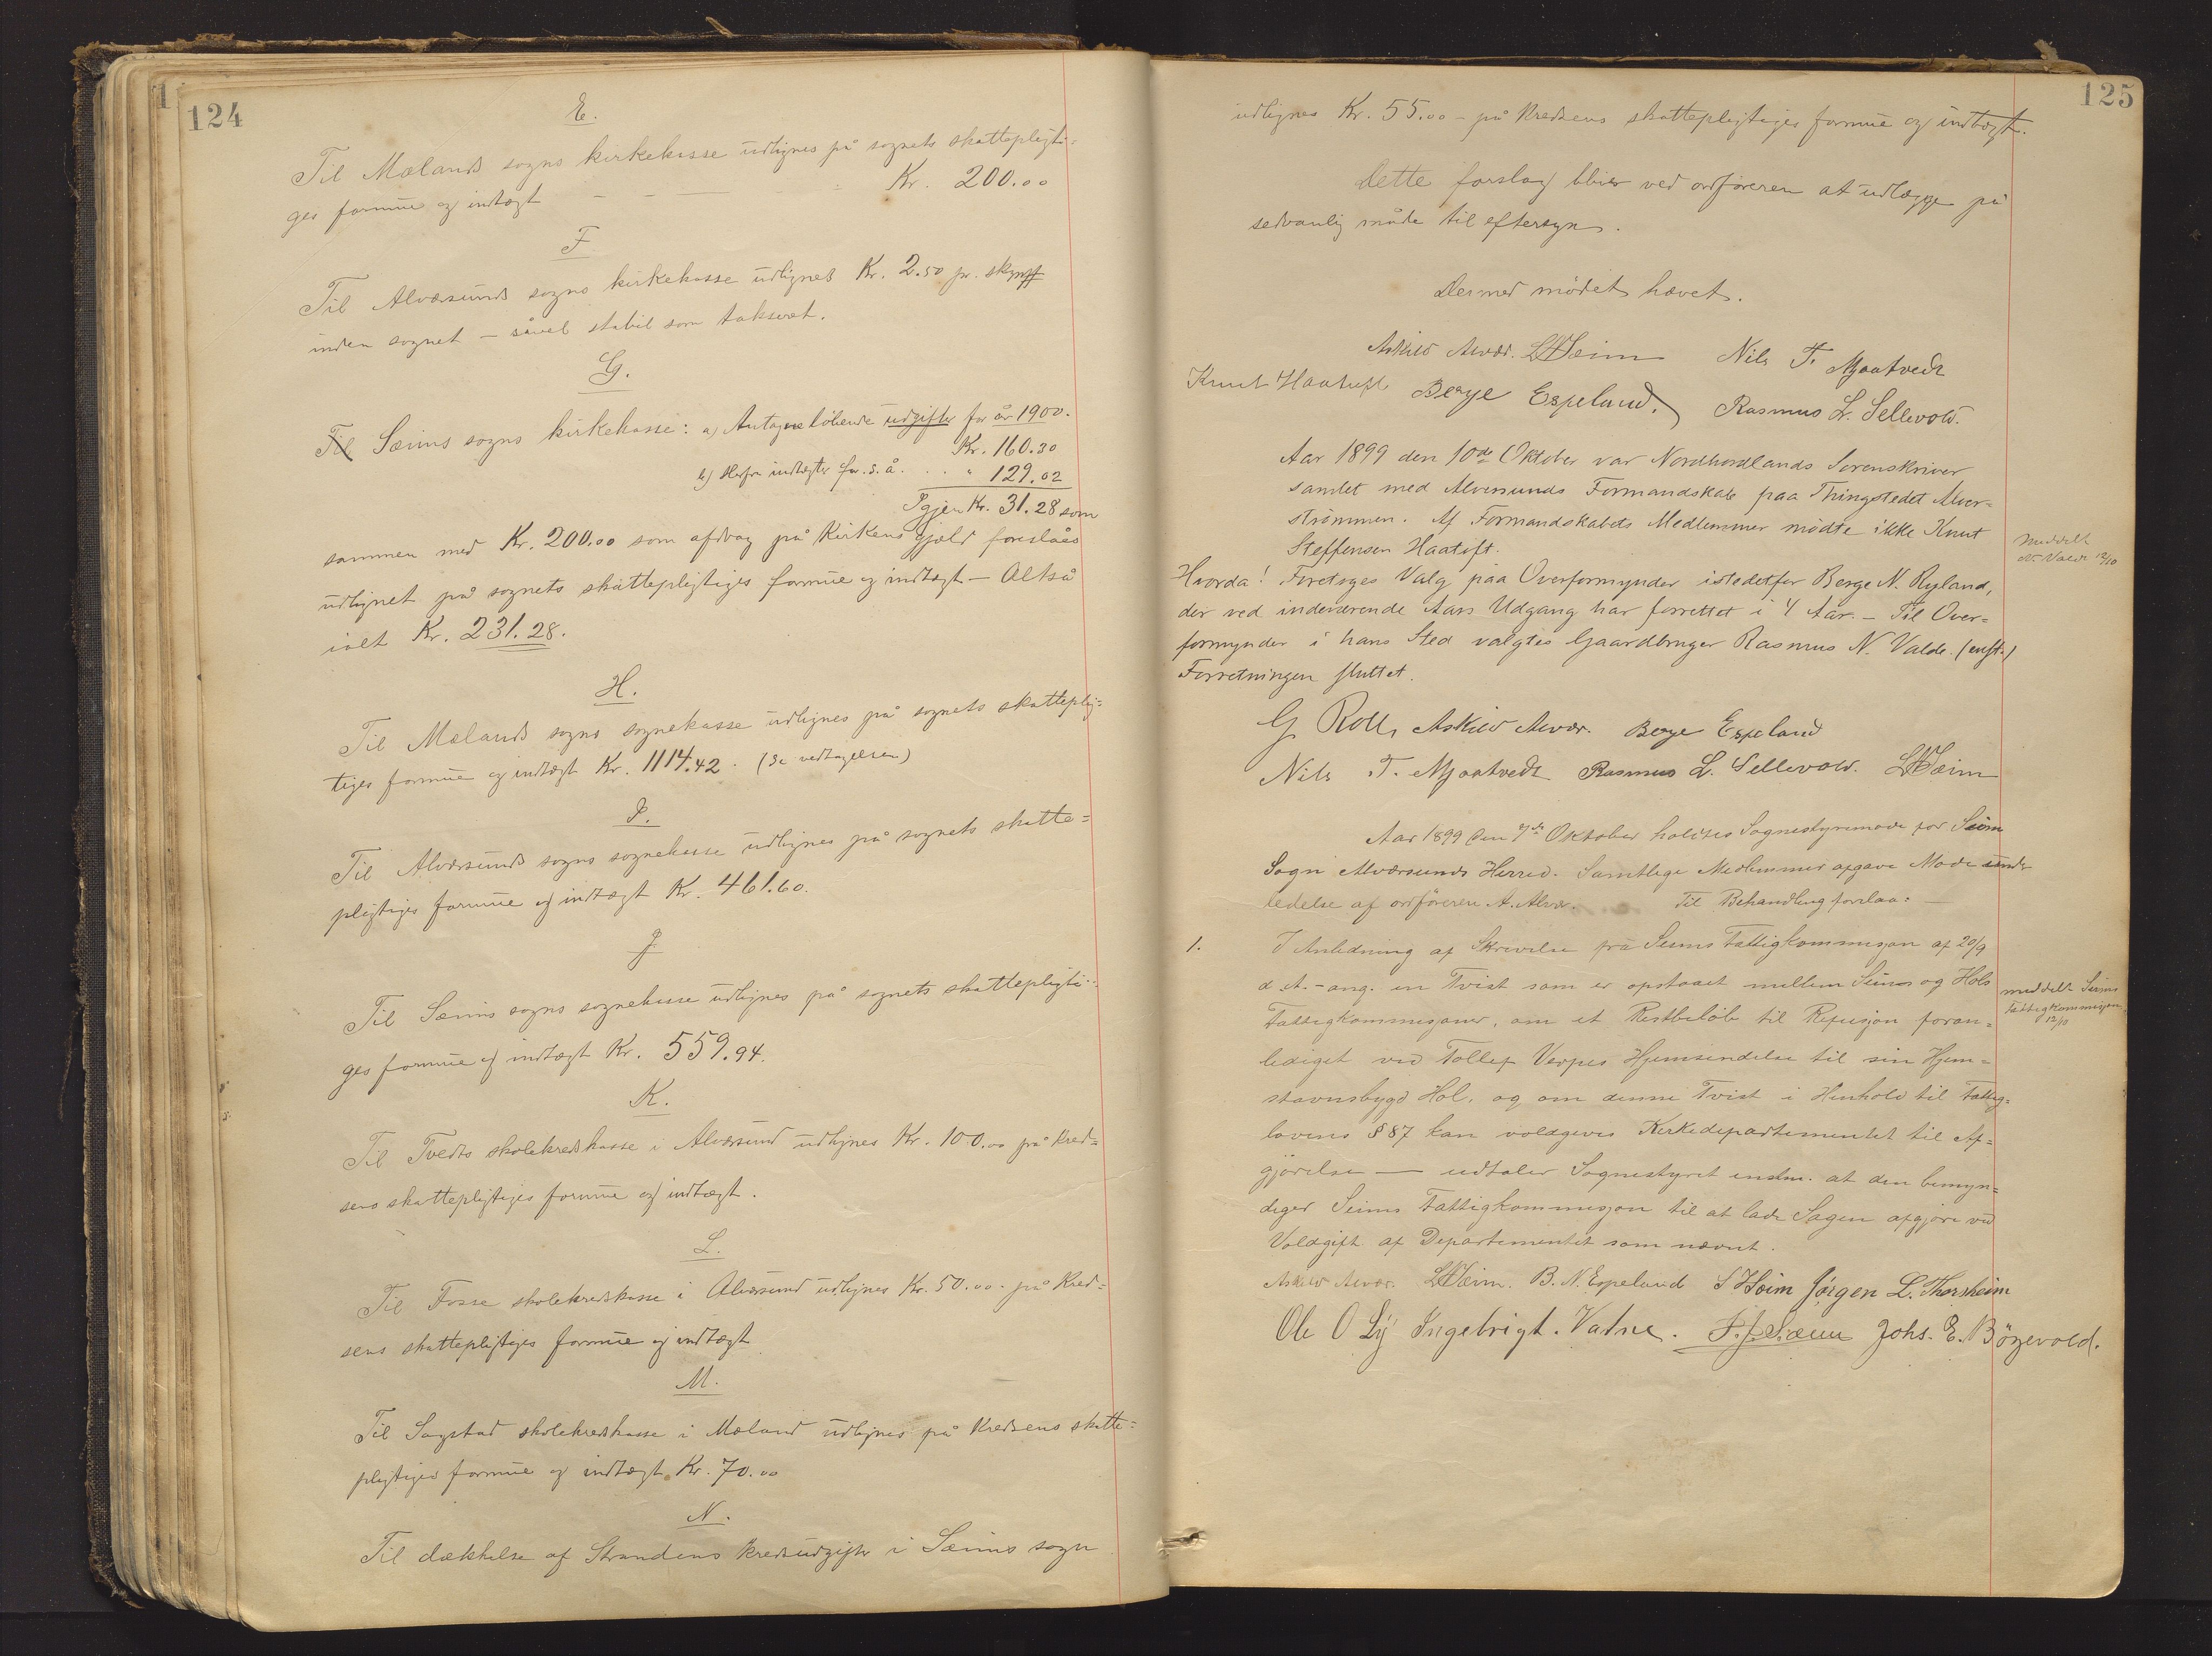 124
E.
Til Mælands sogns kirkekasse udlignes på sognets skattepligti=
ges formue og indtægt — — Kr. 200.00
F
Til Alværsunds sogns kirkekasse udlignes Kr. 2.50 pr. skyps#
inden sognet – såvel stabil som takseret.
G.
Til Sæims sogns kirkekasse: a) Antagne løbende udgifter for år 1900.
Kr. 160.30
b) Herfra indtægter for s. å. . . " 129.02
Igjen Kr. 31.28 som
sammen med Kr. 200.00 som afdrag på Kirkens gjæld foreslåes
udlignet på sognets skattepligtiges formue og indtægt – Altså
ialt Kr. 231.28.
H.
Til Mælands sogns sognekasse udlignes på sognets skatteplig=
tiges formue og indtægt Kr. 1114.42. (Se vedtagelsen)
I.
Til Alværsunds sogns sognekasse udlignes på sognets skatte=
pligtiges formue og indtægt Kr. 461.60.
J
Til Sæims sogns sognekasse udlignes på sognets skattepligti=
ges formue og indtægt Kr. 559.94.
K.
Til Tvedts skolekredskasse i Alværsund udlignes Kr. 100.00 på Kred=
sens skattepligtiges formue og indtægt.
L.
Til Fosse skolekredskasse i Alværsund udlignes Kr. 50.00 på Kred=
sens skattepligtiges formue og indtægt
M.
Til Sagstad skolekredskasse i Mæland udlignes på Kredsens skatte=
pligtiges formue og indtægt Kr. 70.00
N.
Til dækkelse af Strandens kredsudgifter i Sæims sogn
125
udlignes Kr. 55.00 – på Kredsens skattepligtiges formue og indtægt.
Dette forslag bliver ved ordføreren at udlægge på
sedvanlig måde til eftersyn.
Dermed mødet hævet.
Askild Alvær. LHSeim Nils T. Mjaatvedt
Knut Haatuft Berge Espeland. Rasmus L. Sellevold.
Aar 1899 den 10de Oktober var Nordhordlands Sorenskriver
samlet med Alversunds Formandskab paa Thingstedet Alver=
strømmen. Af Formandskabets Medlemmer mødte ikke Knut
Steffensen Haatift.
Meddelt
N. Valde 12/10
Hvorda! Foretoges Valg paa Overformynder istedetfor Berge N. Ryland,
der ved indeværende Aars Udgang har forrettet i 4 Aar. – Til Over=
formynder i hans Sted valgtes Gaardbruger Rasmus N. Valde. (enst.)
Forretningen sluttet.
G Roll, Askild Alvær. Berge Espeland
Nils T. Mjaatvedt Rasmus L. Sellevold. LHSeim
Aar 1899 den 9de Oktober holdtes Sognestyremøde for Seim
Sogn Alværsunds Herred. Samtlige Medlemmer afgave Møde under
ledelse af ordføreren A. Alvær. Til Behandling forelaa: —
1. I Anledning af Skrivelse fra Seims Fattigkommisjon af 20/9
d. A. – ang. en Tvist som er opstaaet mellem Seims og Hols
meddelt Seims
Fattigkommisjon
12/10
Fattigkommisjoner, om et Restbeløb til Refusjon foran=
lediget ved Tollef Verpes Hjemsendelse til sin Hjem=
stavnsbygd Hol, og om denne Tvist i Henhold til Fattig=
lovens § 87 kan voldgives Kirkedepartementet til Af=
gjørelse — udtaler Sognestyret endm. at den bemyn=
diger Seims Fattigkommisjon til at lade Sagen afgjøre ved
Voldgift af Departementet som nævnt.
Askild Alvær. LHSeim. B. N. Espeland S Hoim Jørgen L. Thorsheim
Ole O Ly Ingebrigt. Vatne. Johs. E. Bözevold.